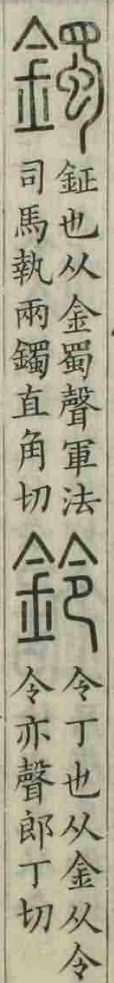 鐲
鉦也从金蜀聲軍法
司馬執兩鐲直角切
鈴
令丁也从金从令
令亦聲郎丁切